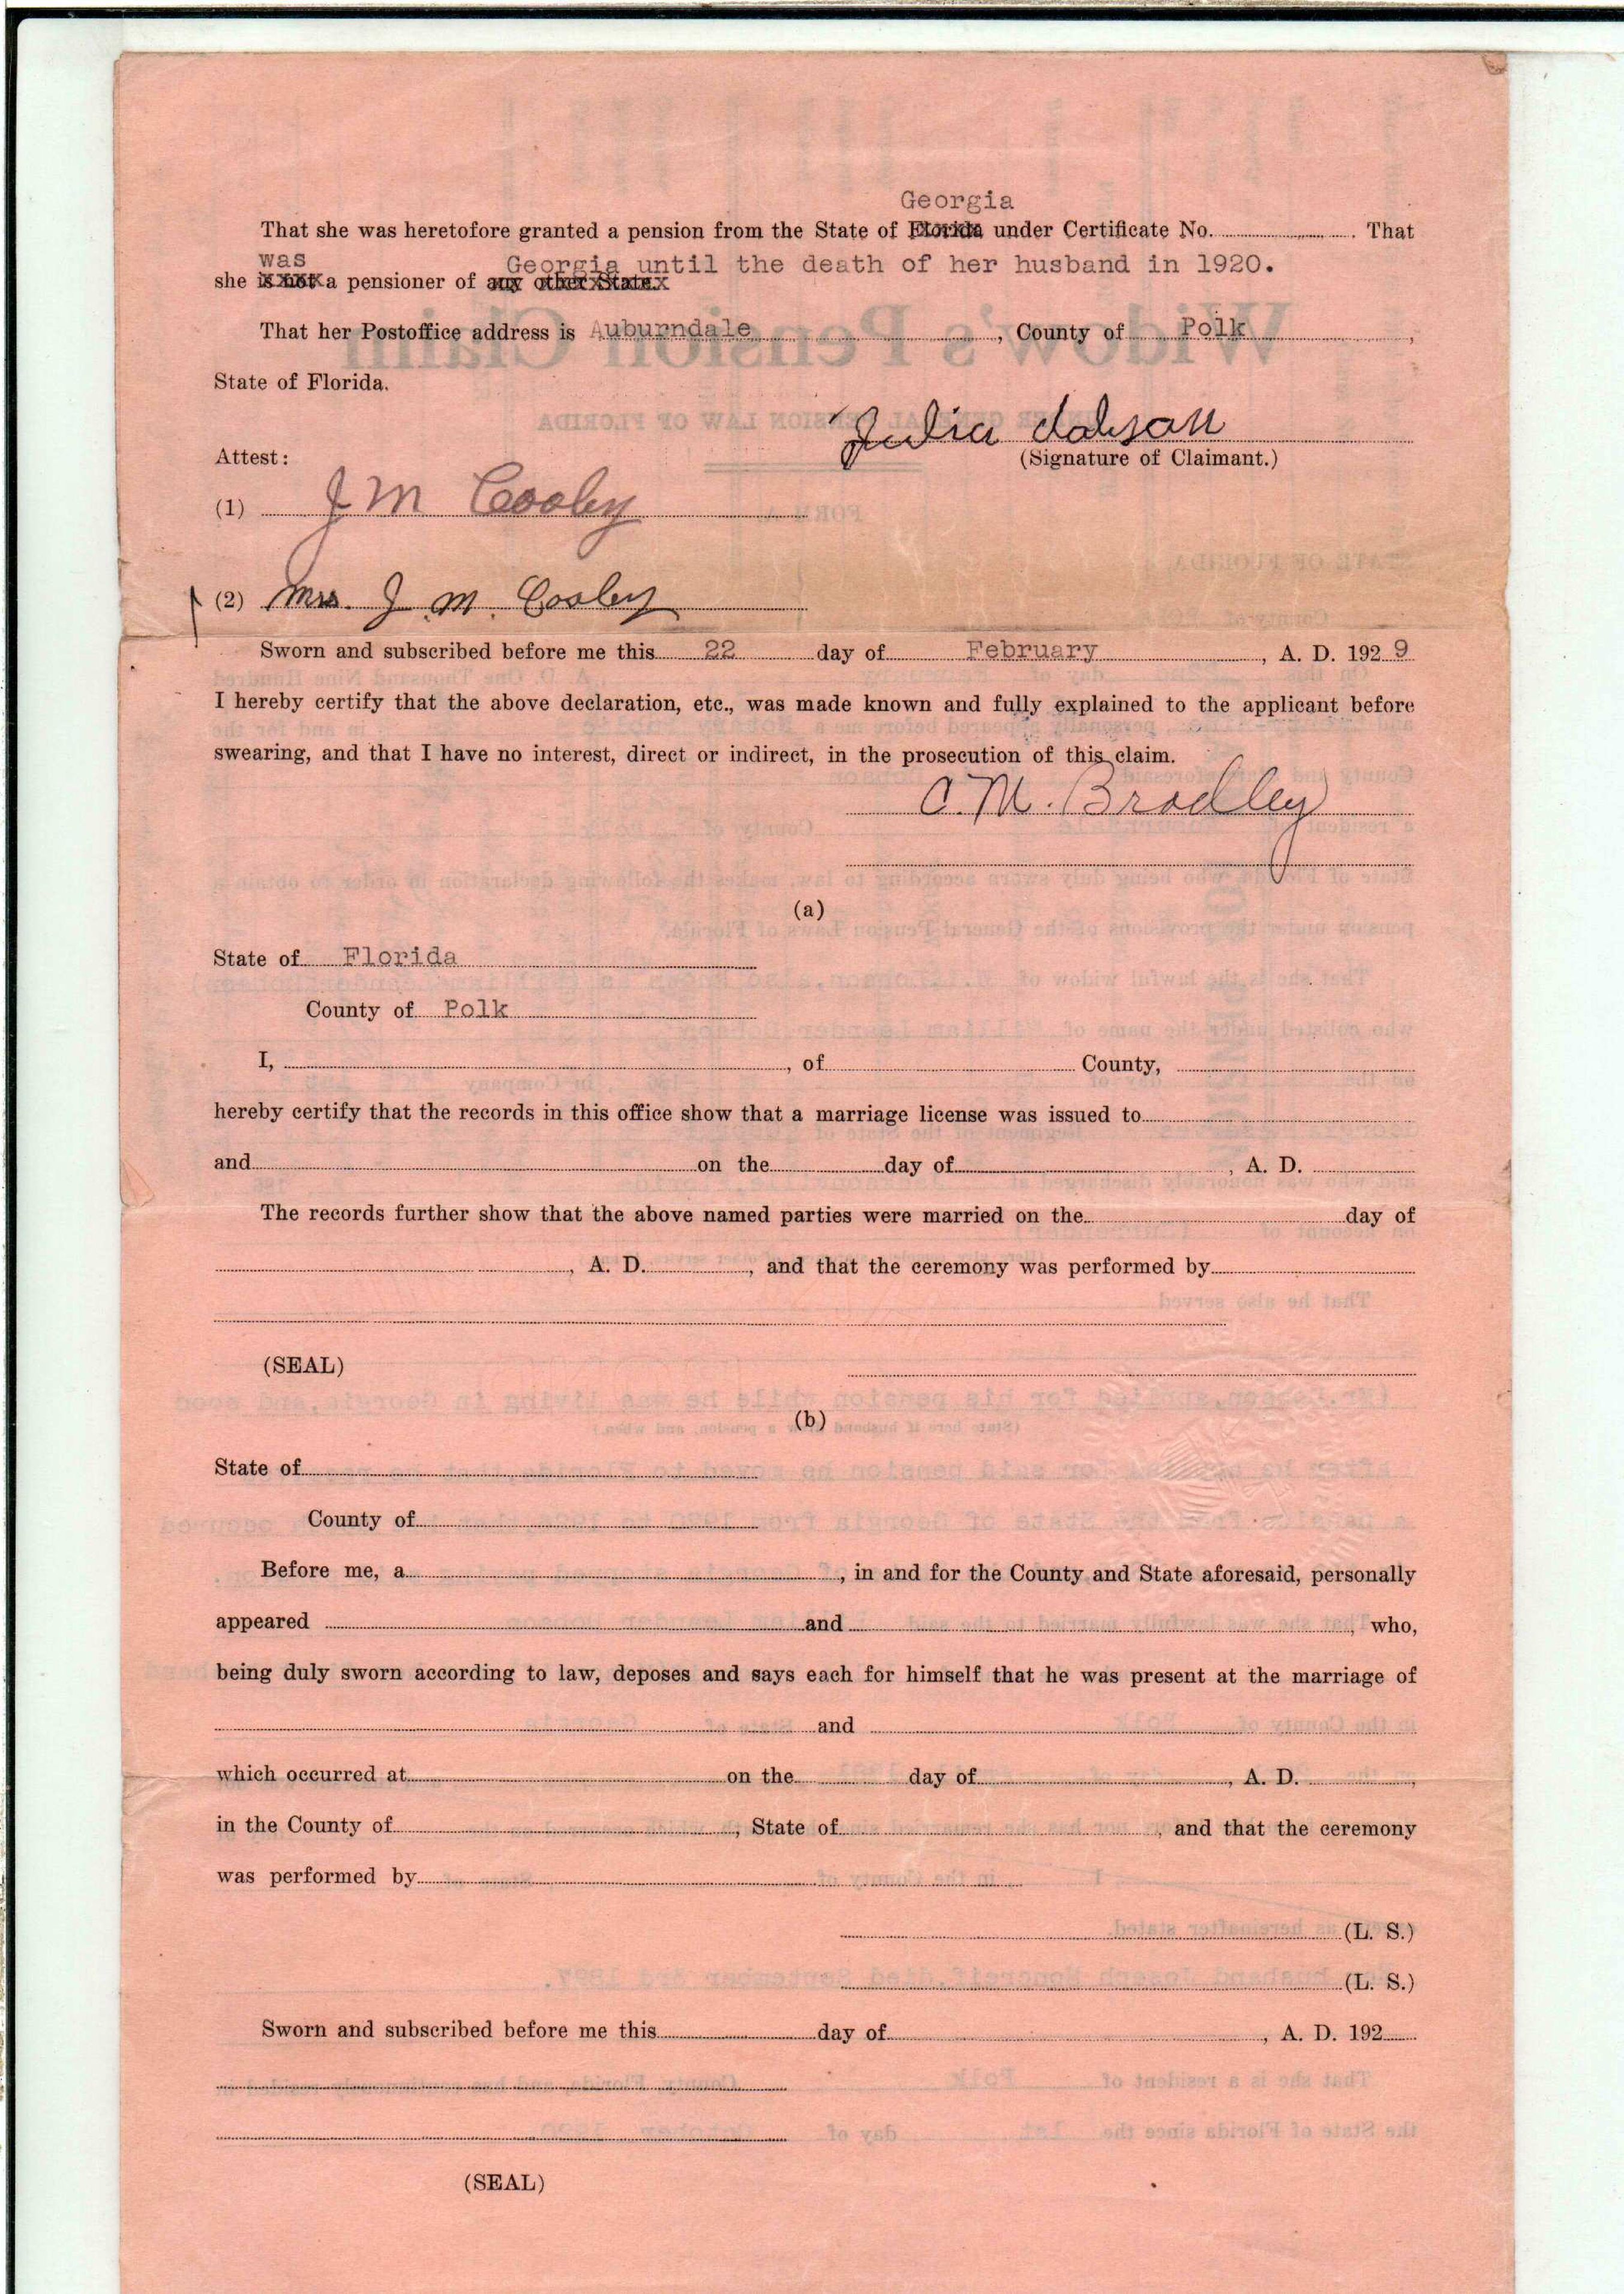 Georgia
That she was heretofore granted a pension from the State of Florida under Certificate No. . That
was Georgia until the death of her husband in 1920.
she is not a pensioner of any other State.
That her Postoffice address is Auburndale , County of Polk ,
State of Florida.
Julia dobson
Attest: (Signature of Claimant.)
(1) J M Cooley
(2) Mrs. J. M. Cooley
Sworn and subscribed before me this 22 day of February , A. D. 1929
I hereby certify that the above declaration, etc., was made known and fully explained to the applicant before
swearing, and that I have no interest, direct or indirect, in the prosecution of this claim.
C. M. Bradley
(a)
State of Florida
County of Polk
I, , of County,
hereby certify that the records in this office show that a marriage license was issued to
and on the day of , A. D.
The records further show that the above named parties were married on the day of
, A. D. , and that the ceremony was performed by
(SEAL)
(b)
State of
County of
Before me, a , in and for the County and State aforesaid, personally
appeared and , who,
being duly sworn according to law, deposes and says each for himself that he was present at the marriage of
and
which occurred at on the day of , A. D. ,
in the County of , State of , and that the ceremony
was performed by
(L. S.)
(L. S.)
Sworn and subscribed before me this day of , A. D. 192
(SEAL)